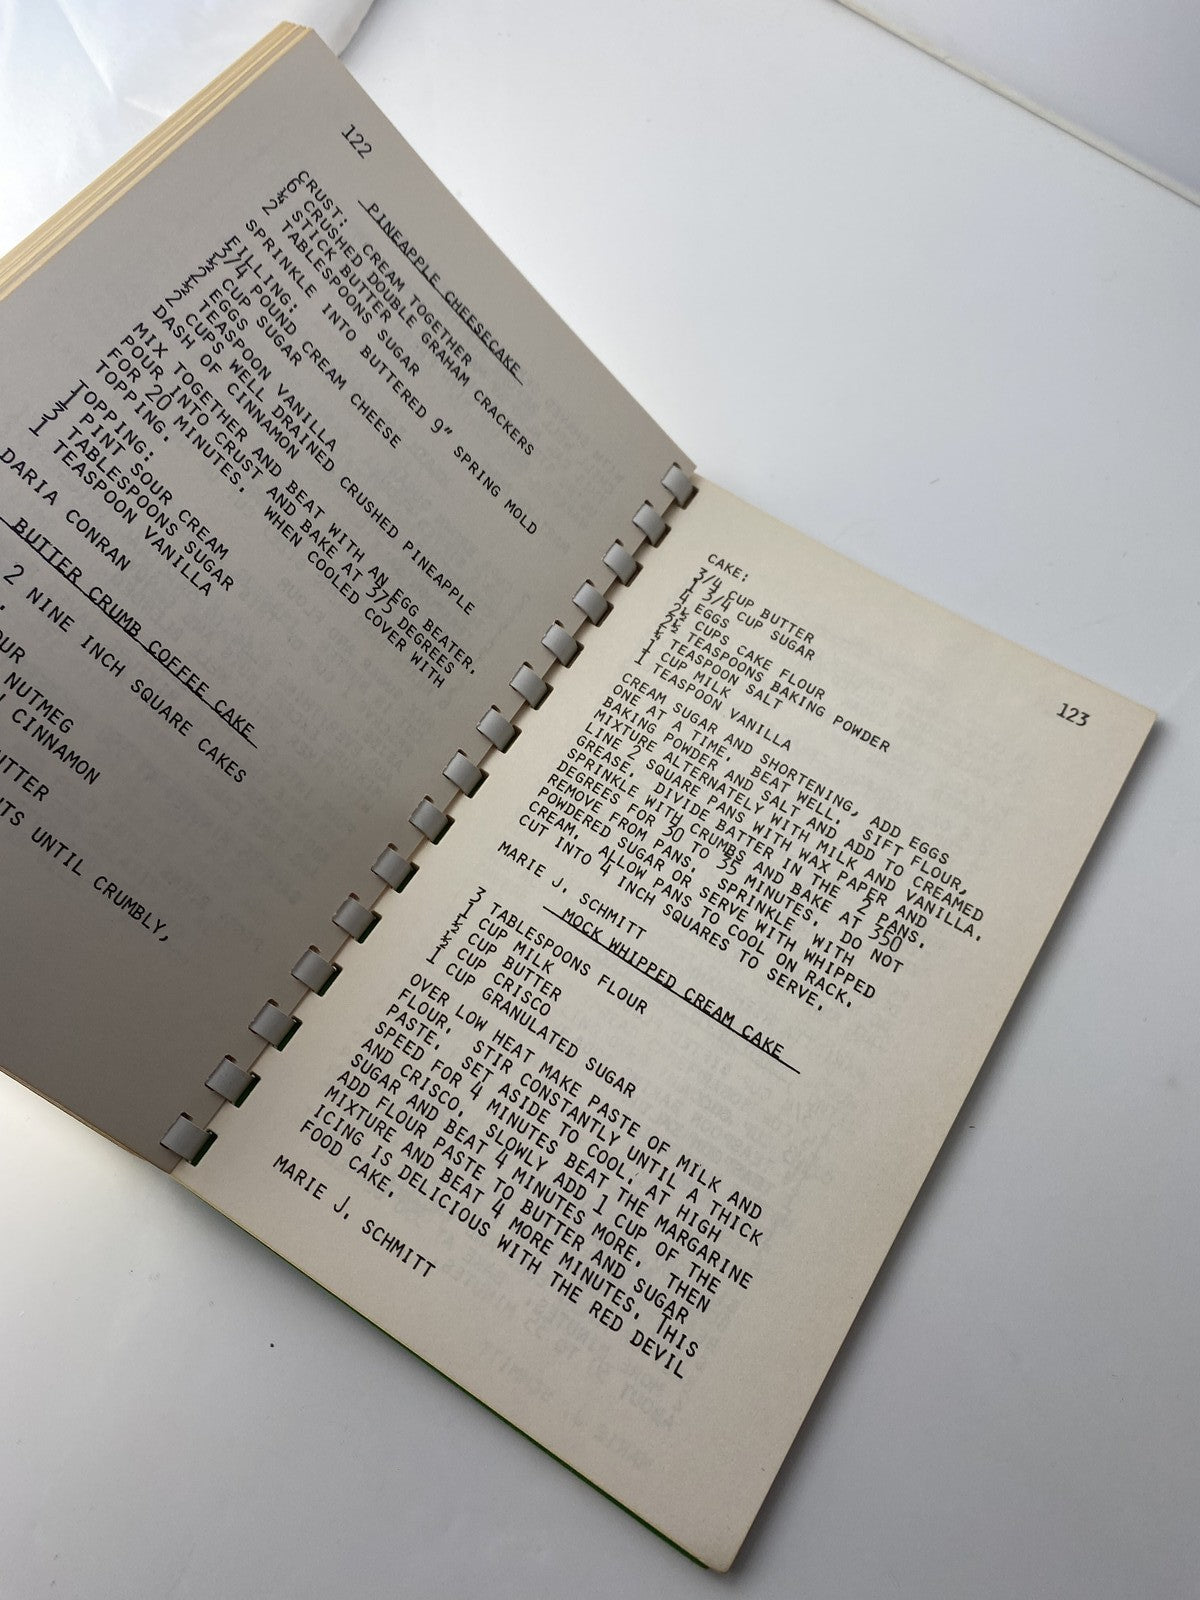 122
PINEAPPLE CHEESECAKE
CRUST: CREAM TOGETHER
6 CRUSHED DOUBLE GRAHAM CRACKERS
½ STICK BUTTER
2 TABLESPOONS SUGAR
SPRINKLE INTO BUTTERED 9" SPRING MOLD
FILLING:
3/4 POUND CREAM CHEESE
½ CUP SUGAR
2 EGGS
½ TEASPOON VANILLA
2 CUPS WELL DRAINED CRUSHED PINEAPPLE
DASH OF CINNAMON
MIX TOGETHER AND BEAT WITH AN EGG BEATER.
POUR INTO CRUST AND BAKE AT 375 DEGREES
FOR 20 MINUTES. WHEN COOLED COVER WITH
TOPPING.
TOPPING:
1 PINT SOUR CREAM
3 TABLESPOONS SUGAR
1 TEASPOON VANILLA
DARIA CONRAN
BUTTER CRUMB COFFEE CAKE
2 NINE INCH SQUARE CAKES
NUTMEG
CINNAMON
UNTIL CRUMBLY,
123
CAKE:
3/4 CUP BUTTER
1 3/4 CUP SUGAR
4 EGGS
2½ CUPS CAKE FLOUR
2½ TEASPOONS BAKING POWDER
½ TEASPOON SALT
1 CUP MILK
1 TEASPOON VANILLA
CREAM SUGAR AND SHORTENING, ADD EGGS
ONE AT A TIME. BEAT WELL. SIFT FLOUR,
BAKING POWDER AND SALT AND ADD TO CREAMED
MIXTURE ALTERNATELY WITH MILK AND VANILLA.
LINE 2 SQUARE PANS WITH WAX PAPER AND
GREASE. DIVIDE BATTER IN THE 2 PANS.
SPRINKLE WITH CRUMBS AND BAKE AT 350
DEGREES FOR 30 TO 35 MINUTES. DO NOT
REMOVE FROM PANS. SPRINKLE WITH
POWDERED SUGAR OR SERVE WITH WHIPPED
CREAM. ALLOW PANS TO COOL ON RACK.
CUT INTO 4 INCH SQUARES TO SERVE.
MARIE J. SCHMITT
MOCK WHIPPED CREAM CAKE
3 TABLESPOONS FLOUR
1 CUP MILK
½ CUP BUTTER
½ CUP CRISCO
1 CUP GRANULATED SUGAR
OVER LOW HEAT MAKE PASTE OF MILK AND
FLOUR. STIR CONSTANTLY UNTIL A THICK
PASTE. SET ASIDE TO COOL. AT HIGH
SPEED FOR 4 MINUTES BEAT THE MARGARINE
AND CRISCO. SLOWLY ADD 1 CUP OF THE
SUGAR AND BEAT 4 MINUTES MORE. THEN
ADD FLOUR PASTE TO BUTTER AND SUGAR
MIXTURE AND BEAT 4 MORE MINUTES. THIS
ICING IS DELICIOUS WITH THE RED DEVIL
FOOD CAKE.
MARIE J. SCHMITT